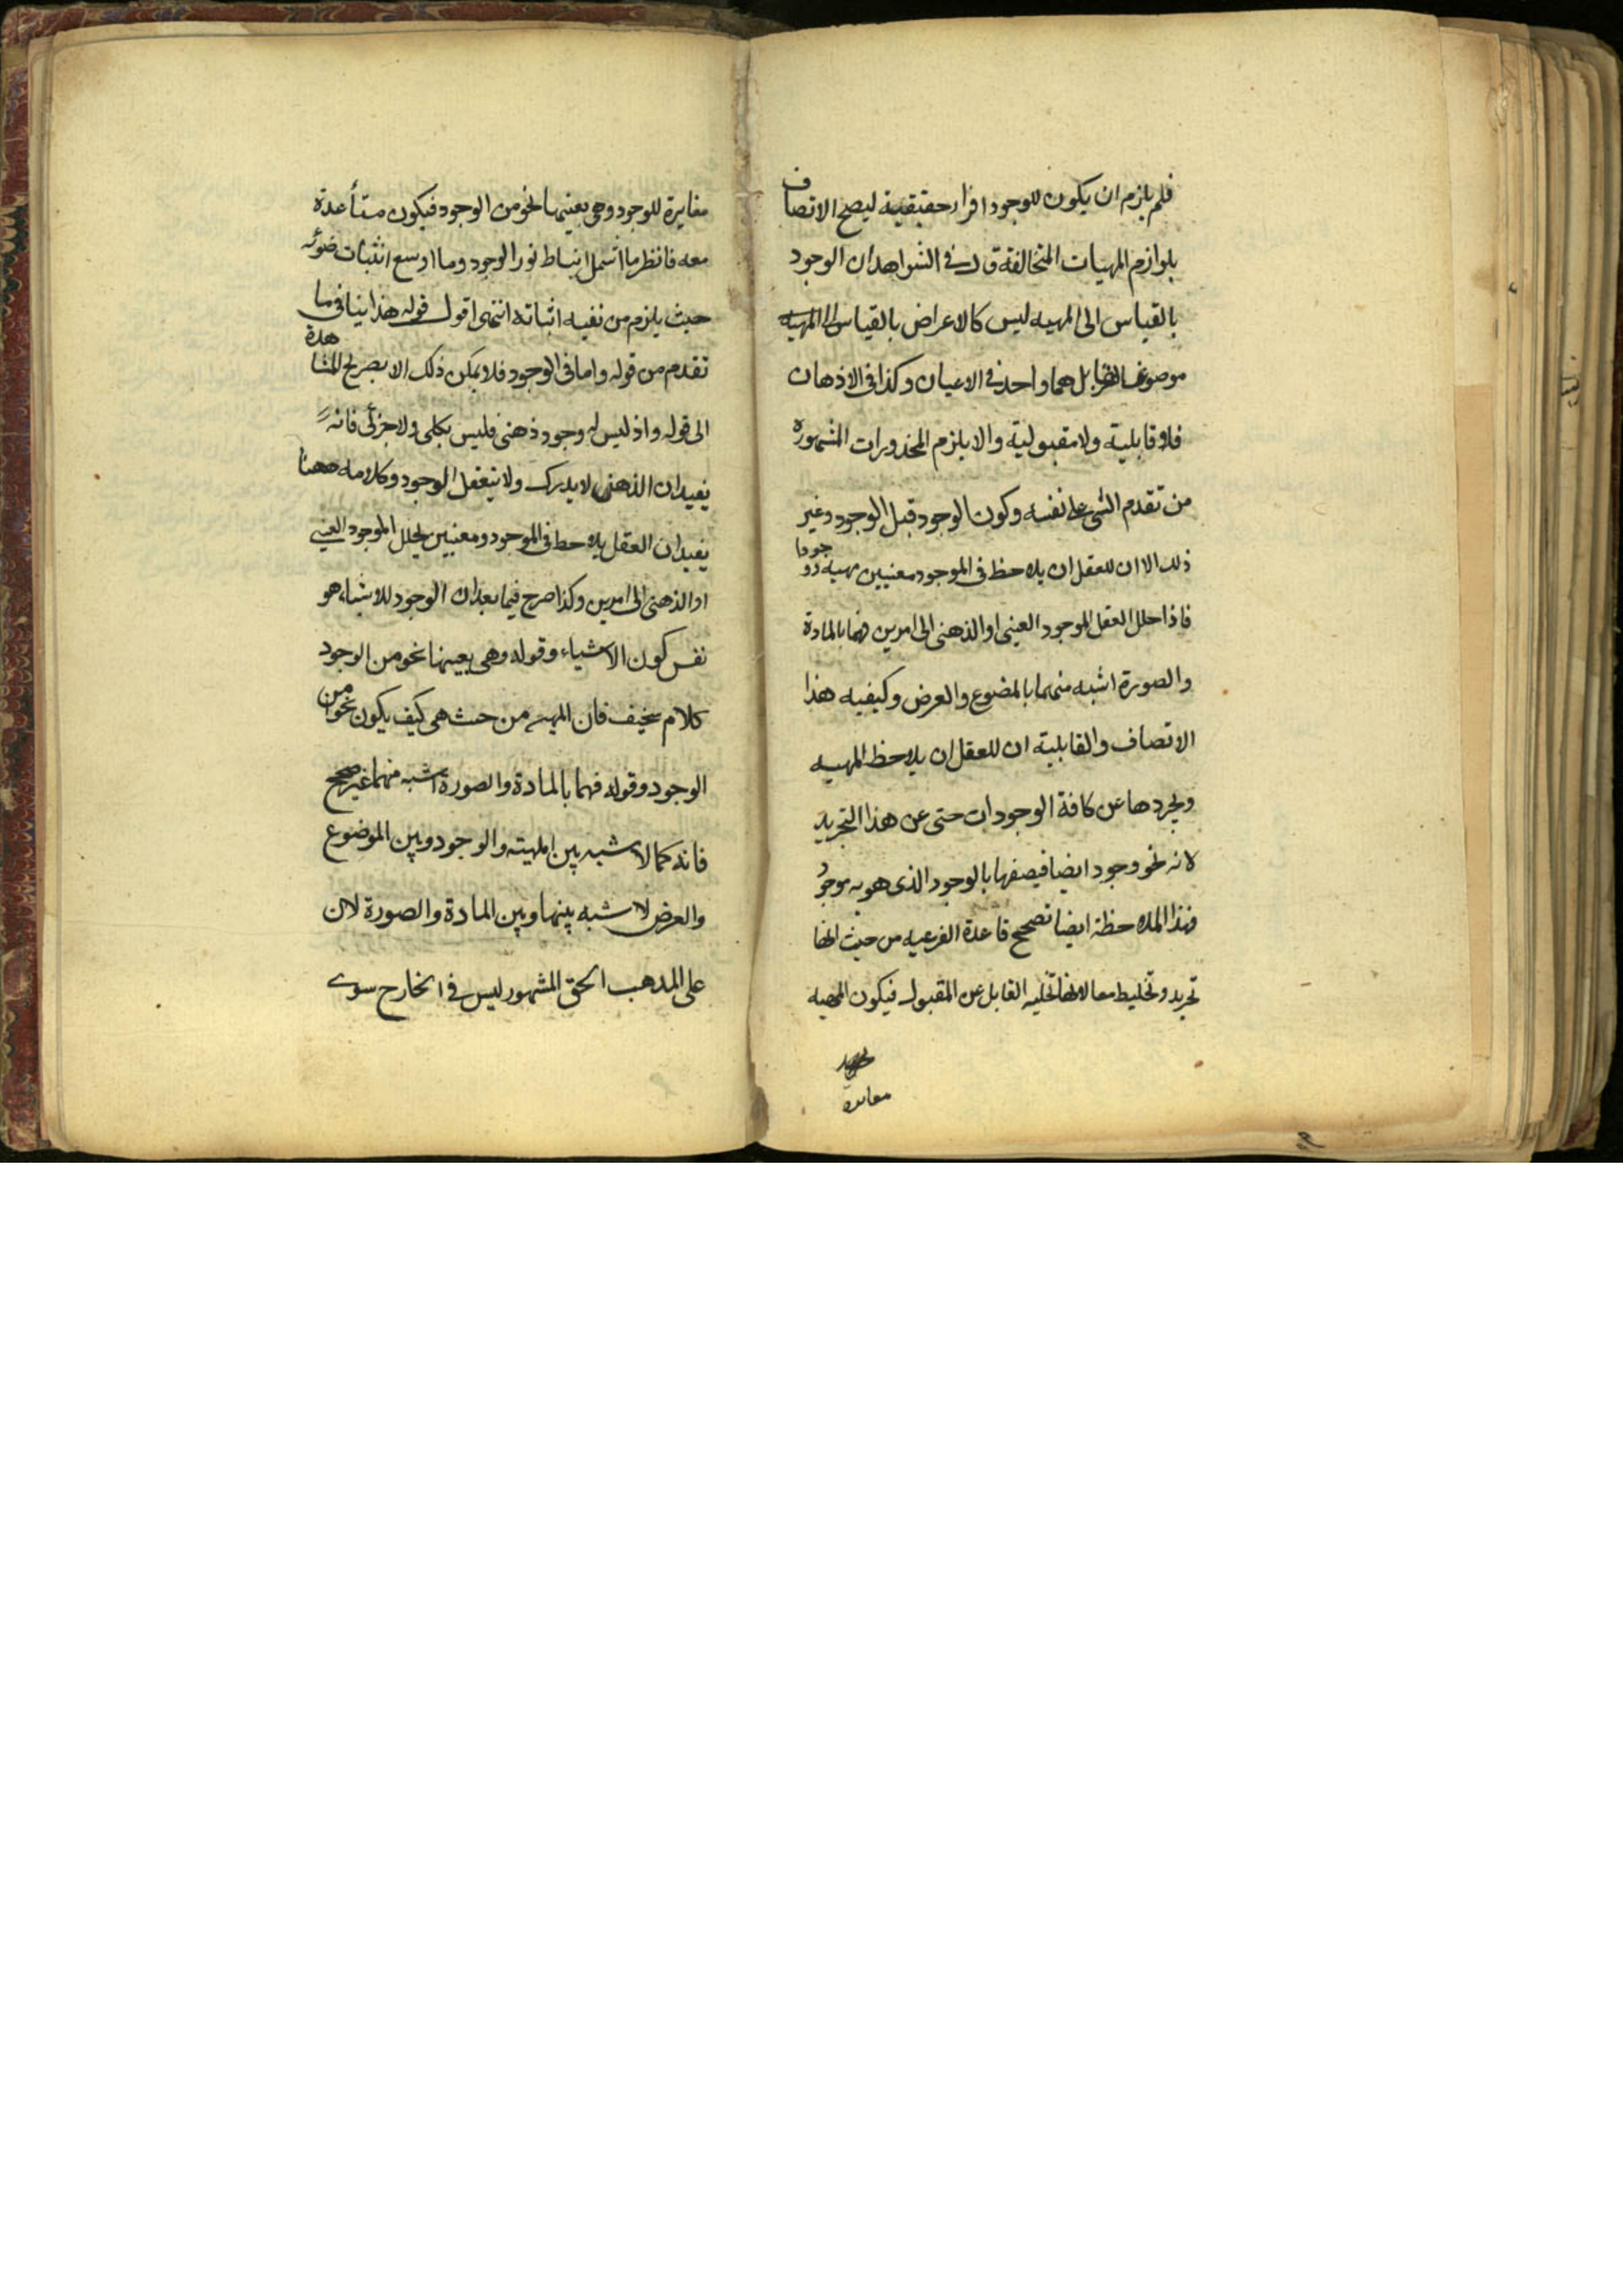 فلم يلزم ان يكون للوجود افراد حقيقية ليصح الاتصاف
بلوازم المهيات المتخالفة قال في الشواهد ان الوجود
بالقياس الى المهيه ليس كالاعراض بالقياس الى
بل هما واحد في الاعيان وكذا في الاذهان
فلا قابلية ولا مقبولية والا يلزم المحذورات المشهورة
من تقدم الشي على نفسه وكون الوجود قبل الوجود وغير
ذلك الا ان للعقل ان يلاحظ في الموجود معنيين مهيه ووجودا
فاذا حلل العقل الموجود العيني او الذهني الى امرين فهما بالمادة
والصورة اشبه منهما بالمضوع والعرض وكيفيه هذا
الاتصاف والقابلية ان للعقل ان يلاحظ المهيه
ويجردها عن كافة الوجودات حتى عن هذا التجريد
لانه نحو وجود ايضا فيصفها بالوجود الذى هو به موجود
فهذا الملاحظة ايضا تصحح قاعدة الفرعيه من حيث انها
تجريد وتخليط معا لانها تخليه القابل عن المقبول فيكون المهيه
مغايرة
مغايرة للوجود وهى بعينها نحو من الوجود فيكون
معه فانظر ما اشمل انبساط نور الوجود وما اوسع انثباث ضوئه
حيث يلزم من نفيه اثباته انتهى اقول قوله هذا ينافي ما
تقدم من قوله واما في الوجود فلا يمكن ذلك الا بصريح المشاهدة
الى قوله واذ ليس له وجود ذهني فليس بكلي ولا جزئي فانه
يفيد ان الذهني لا يدرك ولا يتعقل الوجود وكلامه ههنا
يفيد ان العقل يلاحظ في الموجود ومعنيين يحلل الموجود العيني
او الذهني الى امرين وكذا صرح فيما بعد ان الوجود للاشياء هو
نفس كون الاشياء وقوله وهي بعينها نحو من الوجود
كلام سخيف فان المهيه من حيث هي كيف يكون نحوا من
الوجود وقوله فهما بالمادة والصورة اشبه منهما غير صحيح
فانه كما لا شبه بين المهيته والوجود وبين الموضوع
والعرض لا شبه بينهما وبين المادة والصورة لان
على المذهب الحق المشهور ليس في الخارج سوى